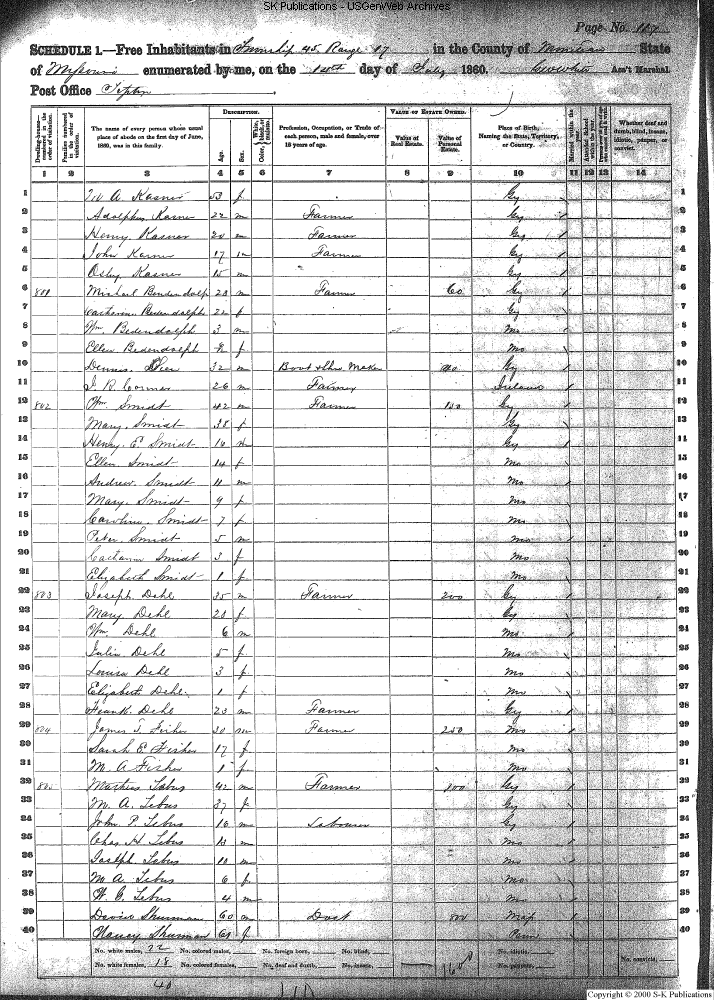 SK Publications - USGenWeb Archives
Page No. 117
SCHEDULE 1.—Free Inhabitants in Township 45 Range 17 in the County of Moniteau State
of Missouri enumerated by me, on the 14th day of July 1860. Ass't Marshal.
Post Office Tipton
Dwelling-houses—numbered in the order of visitation.
Families numbered in the order of visitation.
The name of every person whose usual place of abode on the first day of June, 1860, was in this family.
DESCRIPTION.
Age.
Sex.
Color, White, black, or mulatto.
Profession, Occupation, or Trade of each person, male and female, over 15 years of age.
VALUE OF ESTATE OWNED.
Value of Real Estate.
Value of Personal Estate.
Place of Birth, Naming the State, Territory, or Country.
Married within the year.
Attended School within the year.
Whether deaf and dumb, blind, insane, idiotic, pauper, or convict.
1 2 3 4 5 6 7 8 9 10 11 12 13 14
1 A Kasner 53 f Gy 1
2 Adolphus Kasner 22 m Farmer Gy 2
3 Henry Kasner 20 m Farmer Gy 3
4 John Kasner 17 m Farmer Gy 4
5 Kasner 15 m Gy 5
6 801 Michael 28 m Farmer 60 Gy 6
7 Catherine Bedendolph 22 f Gy 7
8 Wm Bedendolph 3 m Mo 8
9 Ellen Bedendolph f Mo 9
10 Dennis 32 m Boot & Shoe Maker Gy 10
11 J. R. Cormer 26 m Farmer Ireland 11
12 802 Wm Smidt 42 m Farmer 150 Gy 12
13 Mary Smidt 38 f Gy 13
14 Henry E Smidt 16 m Gy 14
15 Ellen Smidt 14 f Mo 15
16 Andrew Smidt 11 m Mo 16
17 Mary Smidt 9 f Mo 17
18 Caroline Smidt 7 f Mo 18
19 Peter Smidt 5 m Mo 19
20 Smidt 3 f Mo 20
21 Elizabeth Smidt 1 f Mo 21
22 803 Joseph Dehl 35 m Farmer 200 Gy 22
23 Mary Dehl 28 f Gy 23
24 Wm Dehl 6 m Mo 24
25 Julia Dehl 5 f Mo 25
26 Louisa Dehl 3 f Mo 26
27 Elizabeth Dehl 1 f Mo 27
28 Frank Dehl 23 m Farmer Gy 28
29 804 James T. Fisher 30 m Farmer 250 Mo 29
30 Sarah E Fisher 17 f Mo 30
31 M. A Fisher 1 f Mo 31
32 805 Mathias Lebus 42 m Farmer Gy 32
33 M. A. Lebus 37 f Gy 33
34 John P. Lebus 16 m Labourer Gy 34
35 Chas H Lebus 13 m Mo 35
36 Joseph Lebus 10 m Mo 36
37 M A Lebus 6 f Mo 37
38 Lebus 4 m Mo 38
39 David Shurman 60 m 800 39
40 Nancy Shurman 61 f Penn 40
No. white males, 22 No. colored males, No. foreign born, No. blind,
No. white females, 18 No. colored females, No. deaf and dumb, No. insane,
No. idiotic, No. paupers, No. convicts,
40
Copyright © 2000 S-K Publications